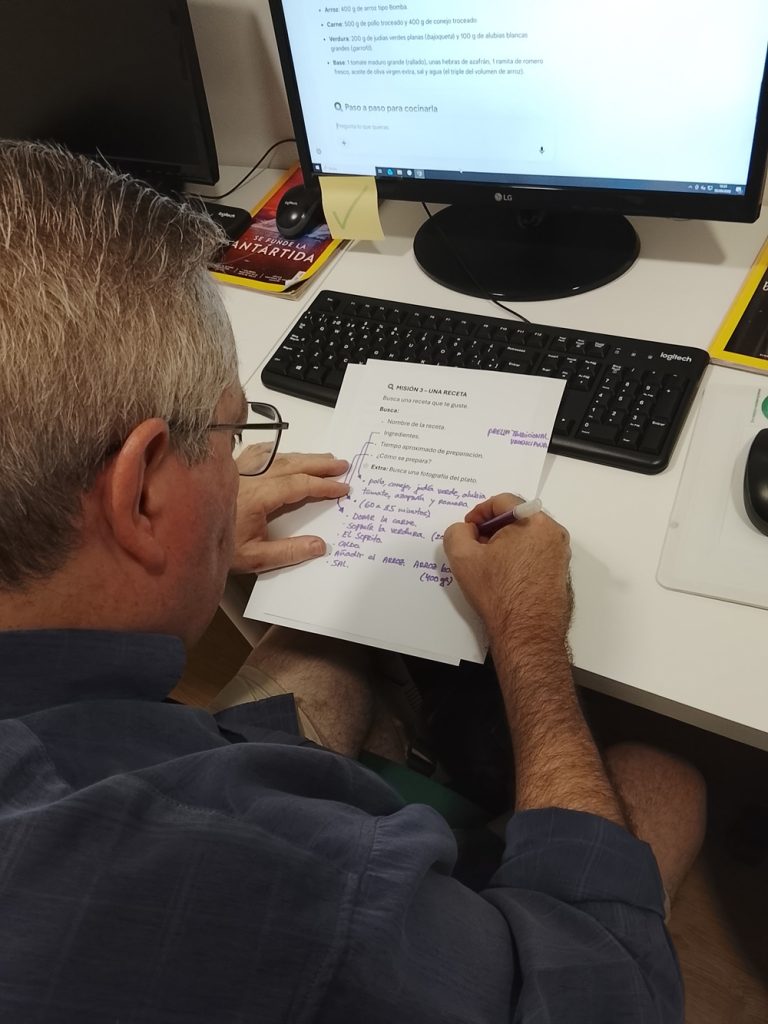 Arroz: 400 g de arroz tipo Bomba.
Carne: 500 g de pollo troceado y 400 g de conejo troceado
Verdura: 200 g de judías verdes planas (bajoqueta) y 100 g de alubias blancas
grandes (garrofó).
Base: 1 tomate maduro grande (rallado), unas hebras de azafrán, 1 ramita de romero
fresco, aceite de oliva virgen extra, sal y agua (el triple del volumen de arroz).
Paso a paso para cocinarla
Pregunta lo que quieras
LG
logitech
SE FUNDE LA
ANTÁRTIDA
logitech
MISIÓN 3 - UNA RECETA
Busca una receta que te guste.
Busca:
Nombre de la receta.
PAELLA TRADICIONAL
VALENCIANA
Ingredientes.
Tiempo aproximado de preparación.
¿Cómo se prepara?
Extra: Busca una fotografía del plato.
pollo, conejo, judía verde, alubia
tomate, azafrán y romero
(60 a 85 minutos)
DORAR LA CARNE.
SOFREÍR LA VERDURA. (20
EL SOFRITO
CALDO
AÑADIR el ARROZ ARROZ
SAL. (400 gr)